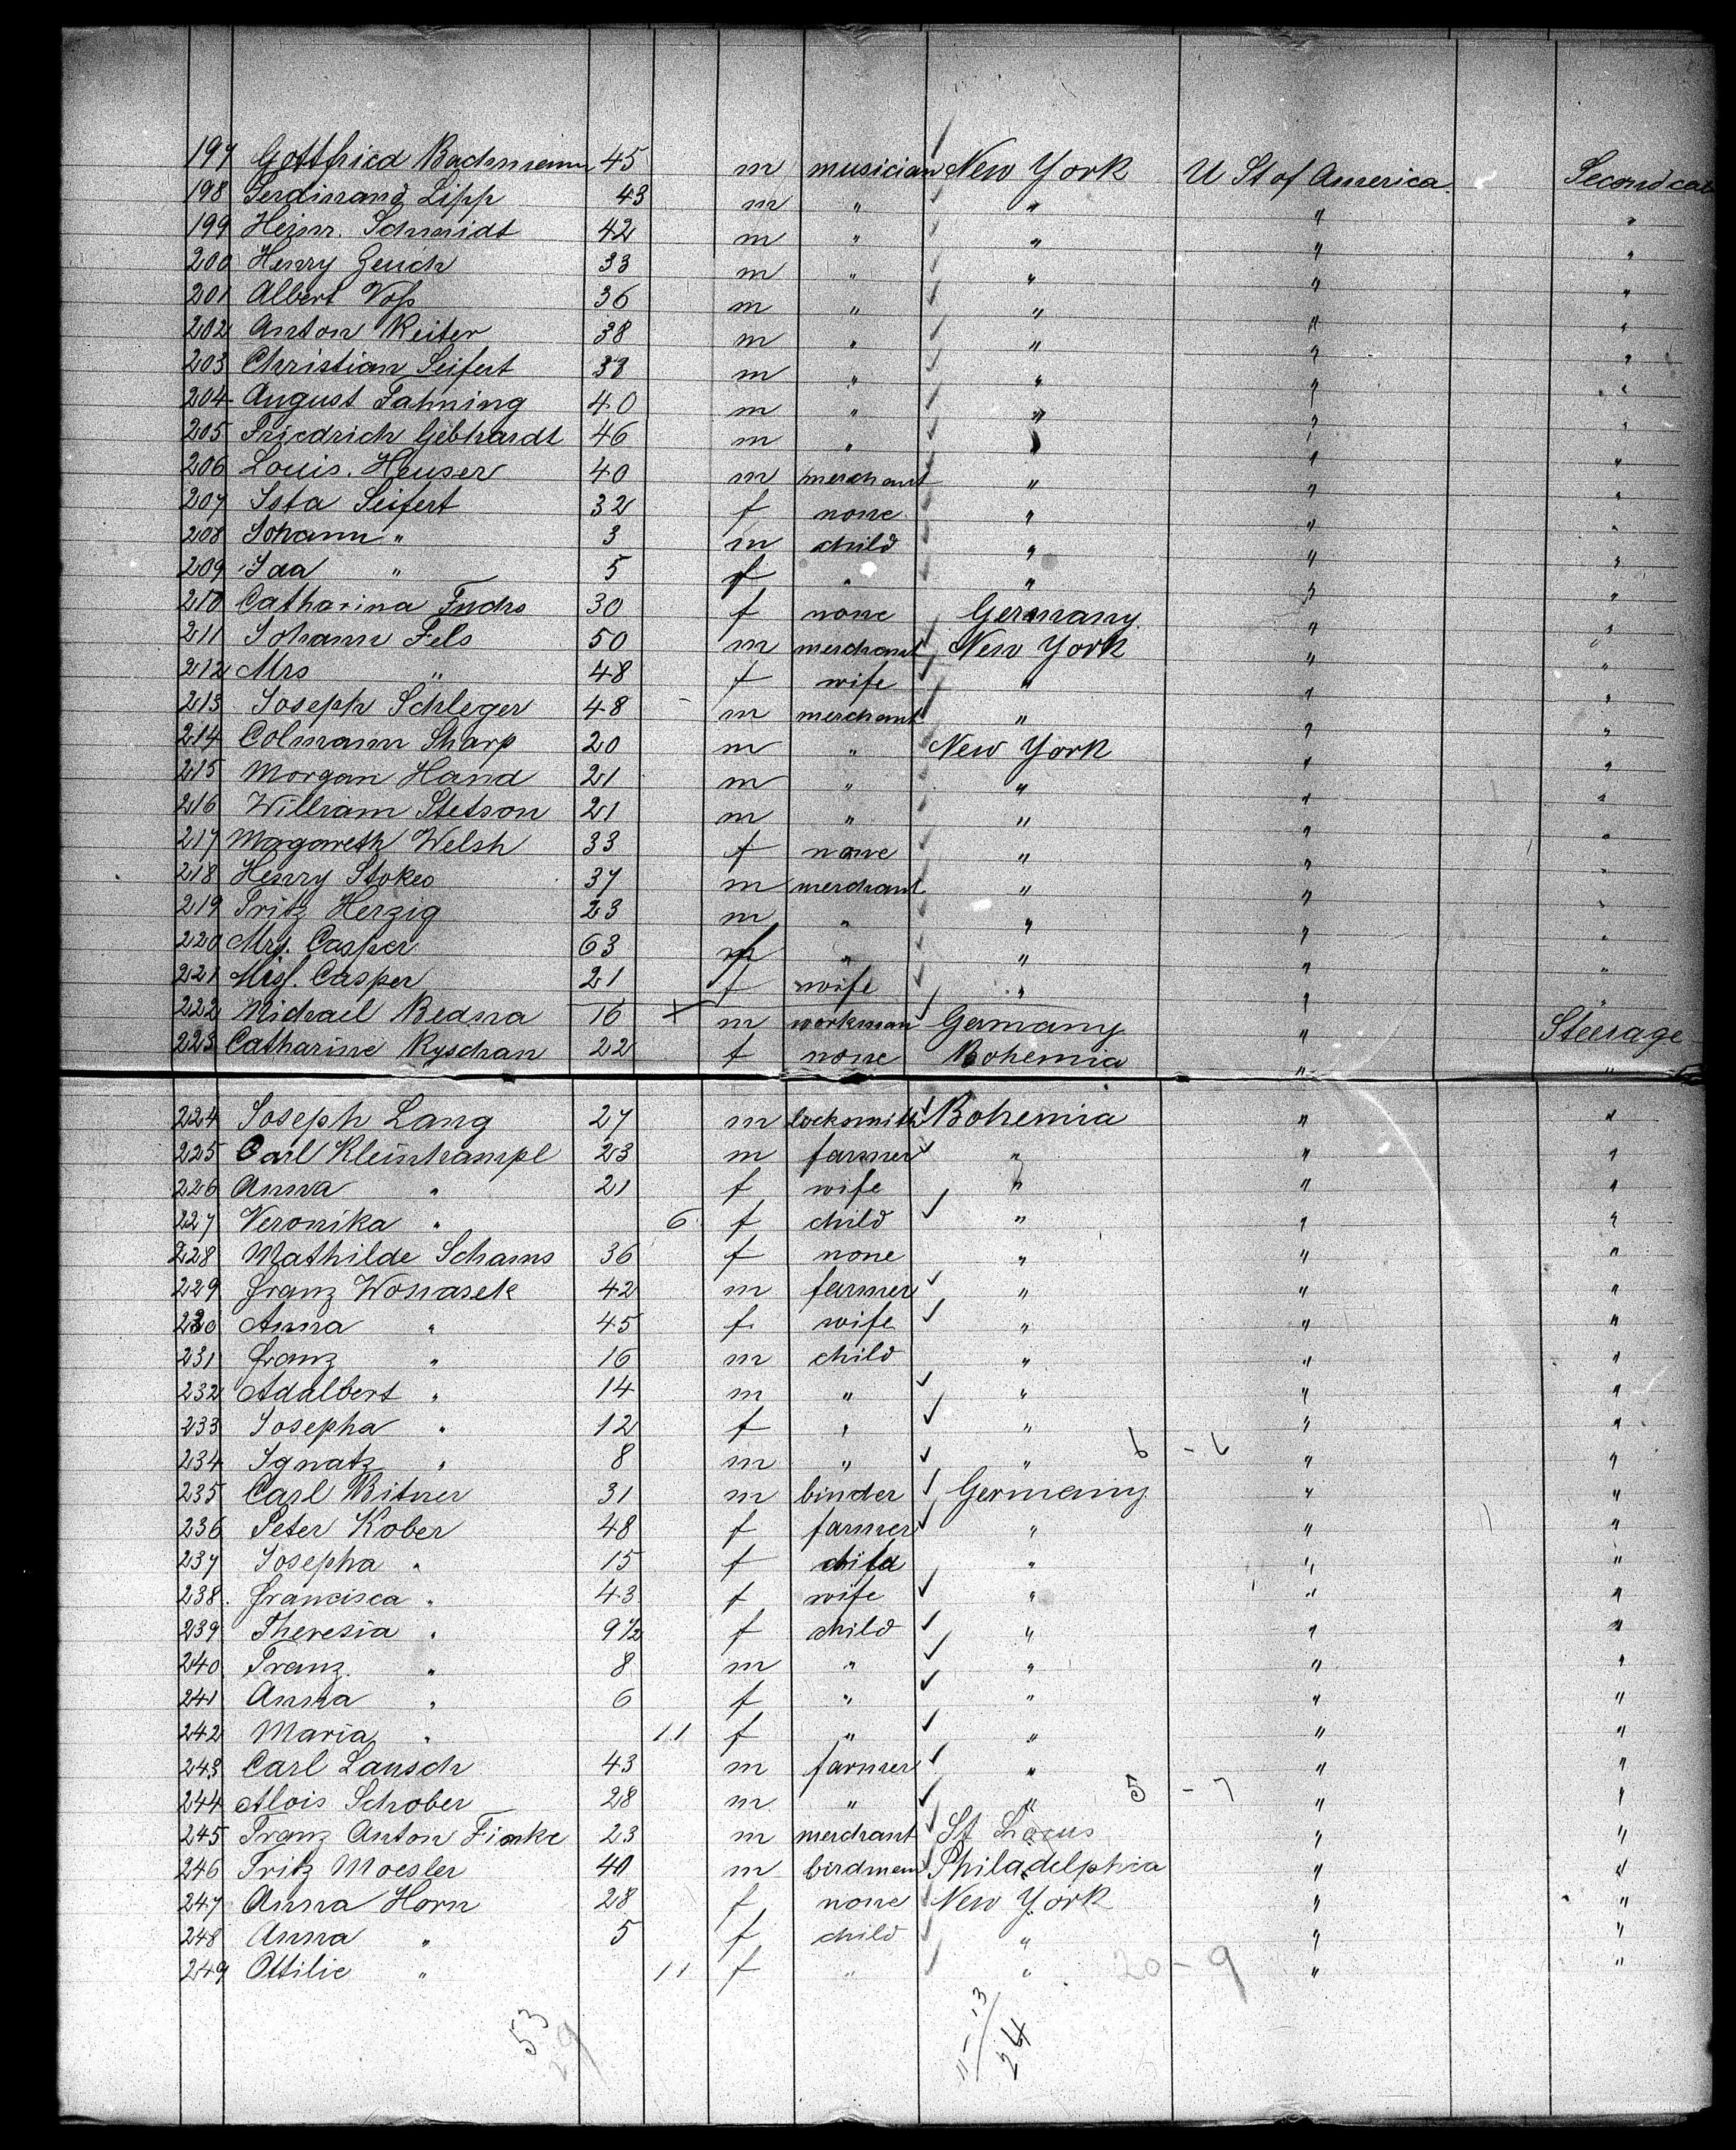 197 Gottfried Bachmann 45 m musician New York U St of America Second cab
198 Ferdinand Lipp 43 m " " " "
199 Heinr. Schmidt 42 m " " " "
200 Henry 33 m " " " "
201 Albert Voß 36 m " " " "
202 Anton Reiter 38 m " " " "
203 Christian Seifert 38 m " " " "
204 August Fahning 40 m " " " "
205 Friedrich Gebhardt 46 m " " " "
206 Louis. Heuser 40 m merchant " " "
207 Seifert 32 f none " " "
208 Johann " 3 m child " " "
209 Ida " 5 f " " " "
210 Catharina Fuchs 30 f none Germany " "
211 Johann Fels 50 m merchant New York " "
212 Mrs " 48 f wife " " "
213 Joseph Schleger 48 m merchant " " "
214 Colmann Sharp 20 m " New York " "
215 Morgan Hand 21 m " " " "
216 William Stetson 21 m " " " "
217 Magareth Welsh 33 f none " " "
218 Henry Stokes 37 m merchant " " "
219 Fritz Herzig 23 m " " " "
220 Mrs. Casper 63 " " " "
221 Miss. Casper 21 f wife " " "
222 Michael Bedna 16 x m workman Germany " Steerage
223 Catharine Ryschan 22 f none Bohemia " "
224 Joseph Lang 27 m locksmith Bohemia " "
225 Carl Kleinhampl 23 m farmer " " "
226 Anna " 21 f wife " " "
227 Veronika " 6 f child " " "
228 Mathilde Schams 36 f none " " "
229 Franz Wonasek 42 m farmer " " "
230 Anna " 45 f wife " " "
231 Franz " 16 m child " " "
232 Adalbert " 14 m " " " "
233 Josepha " 12 f " " " "
234 Ignatz " 8 m " " 6 - 6 " "
235 Carl Bitner 31 m binder Germany " "
236 Peter Kober 48 f farmer " " "
237 Josepha " 15 f child " " "
238. Francisca " 43 f wife " " "
239 Theresia " 9 1/2 f child " " "
240 Franz. " 8 m " " " "
241 Anna " 6 f " " " "
242 Maria " 11 f " " " "
243 Carl Lausch 43 m farmer " " "
244 Alois Schober 28 m " " 5 - 7 " "
245 Franz Anton Finke 23 m merchant St " "
246 Fritz Moesler 40 m birdman Philadelphia " "
247 Anna Horn 28 f none New York " "
248 Anna " 5 f child " " "
249 Ottilie " 11 f " " 20 - 9 " "
53
29
11-13
24